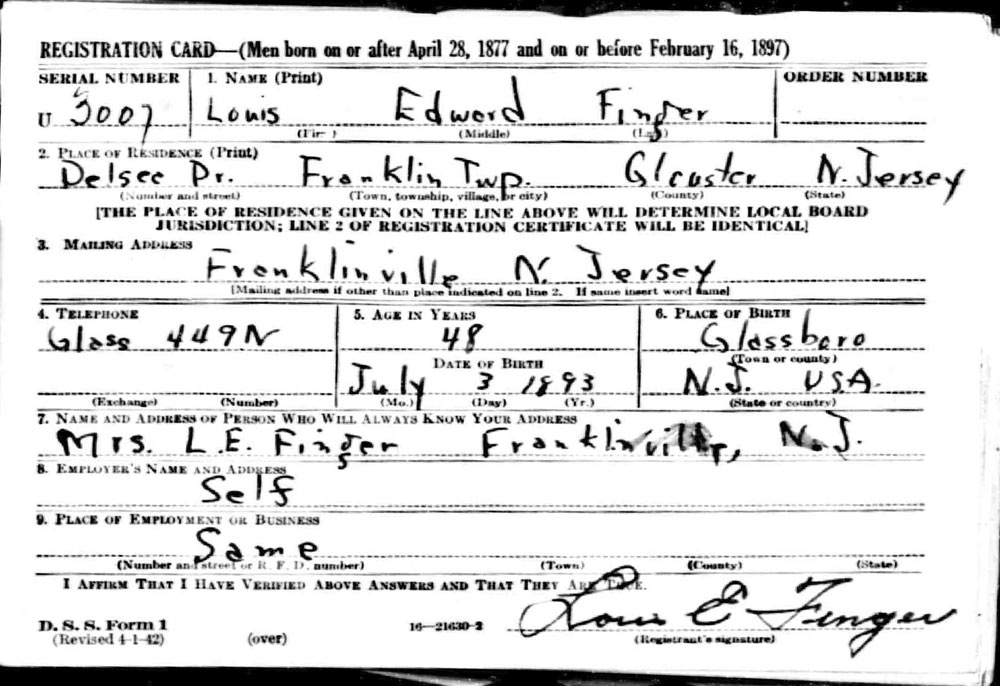 REGISTRATION CARD—(Men born on or after April 28, 1877 and on or before February 16, 1897)
SERIAL NUMBER 1. NAME (Print) ORDER NUMBER
U 3007 Louis Edword Finger
(Middle)
2. PLACE OF RESIDENCE (Print)
Delsee Dr. Franklin Twp. Glcuster N. Jersey
(Number and street) (Town, township, village, or city) (County) (State)
[THE PLACE OF RESIDENCE GIVEN ON THE LINE ABOVE WILL DETERMINE LOCAL BOARD
JURISDICTION; LINE 2 OF REGISTRATION CERTIFICATE WILL BE IDENTICAL]
3. MAILING ADDRESS
Franklinville N. Jersey
[Mailing address if other than place indicated on line 2. If same insert word same]
4. TELEPHONE 5. AGE IN YEARS 6. PLACE OF BIRTH
Glass 449N 48 Glassboro
DATE OF BIRTH (Town or county)
July 3 1893 N.J. USA.
(Exchange) (Number) (Mo.) (Day) (Yr.) (State or country)
7. NAME AND ADDRESS OF PERSON WHO WILL ALWAYS KNOW YOUR ADDRESS
Mrs. L.E. Finger Franklinville, N.J.
8. EMPLOYER'S NAME AND ADDRESS
Self
9. PLACE OF EMPLOYMENT OR BUSINESS
Same
(Number and street or R. F. D. number) (Town) (County) (State)
I AFFIRM THAT I HAVE VERIFIED ABOVE ANSWERS AND THAT THEY ARE TRUE.
Louis E Finger
D. S. S. Form 1 16—21630-2
(Revised 4-1-42) (over) (Registrant's signature)